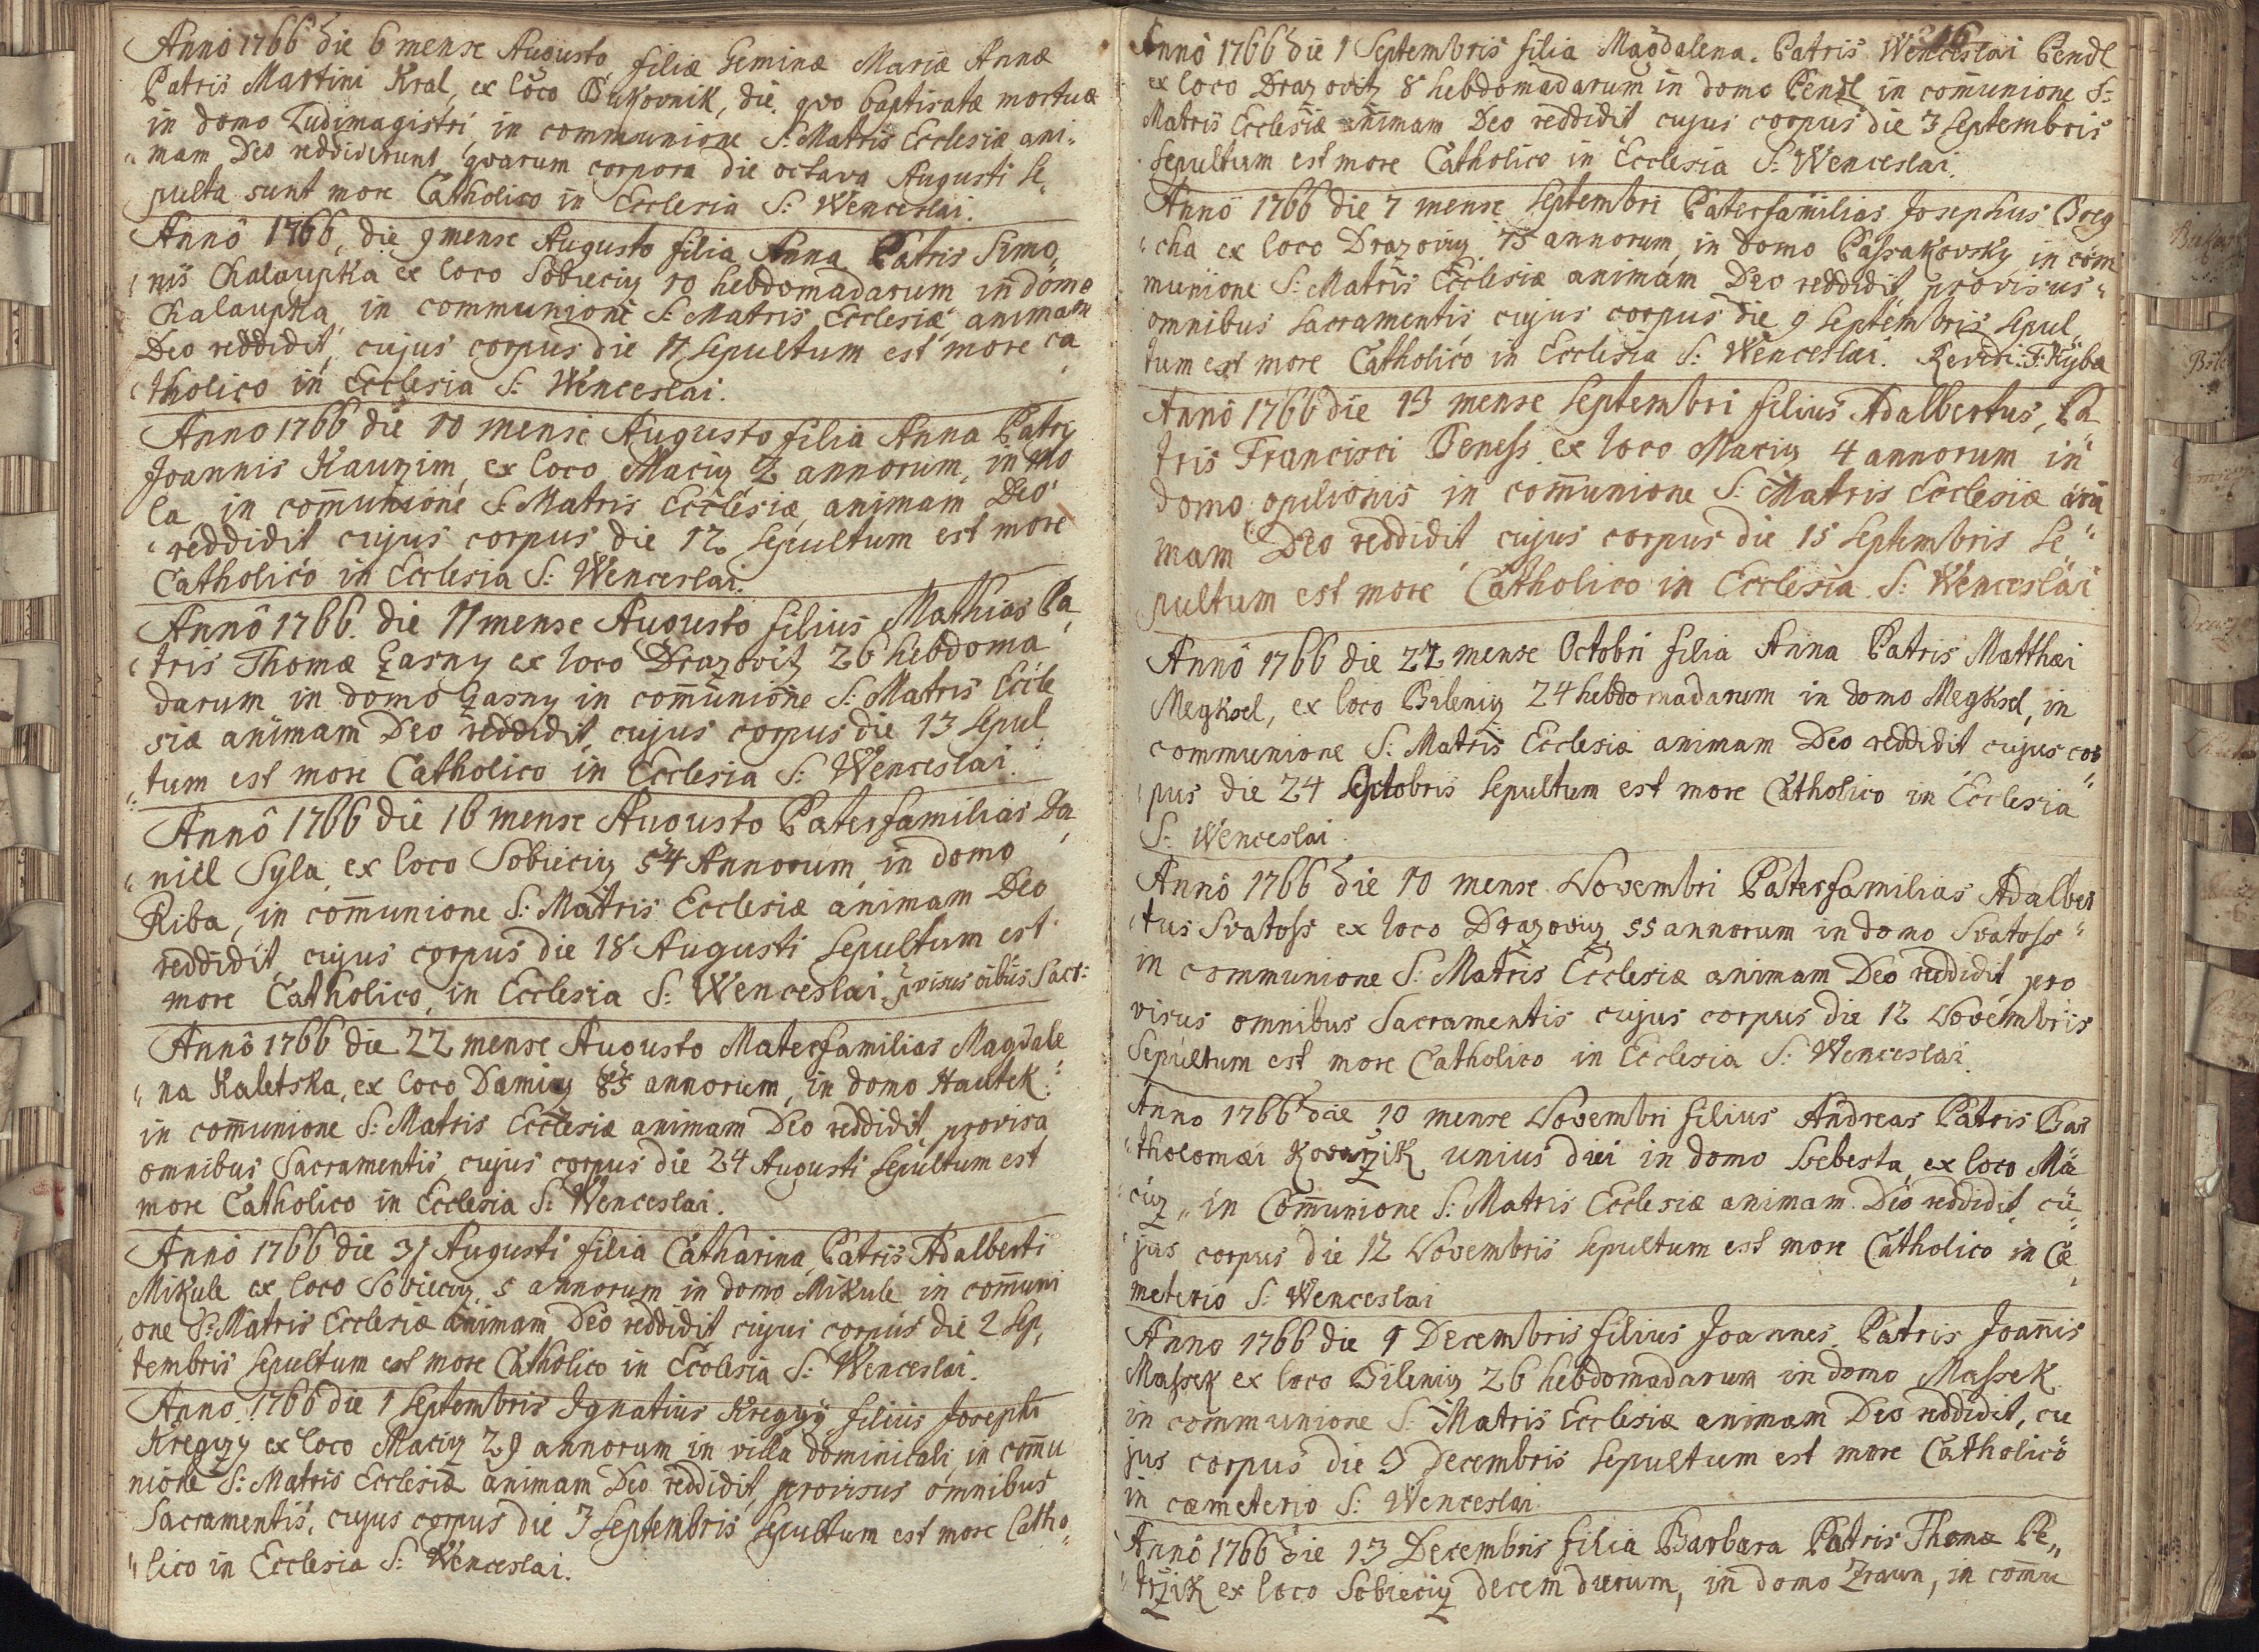 Annô 1766 die 6 mense Augusto filiæ Geminæ Mariæ Annæ
Patris Martini Kral, ex loco Bukovnik, die quo baptisatæ mortuæ
in domo Ludimagistri in communione S: Matris Ecclesiæ ani„
„mam Deo reddiderunt quarum corpora die octava Augusti Se„
pulta sunt more Catholico in Ecclesia S: Wenceslai.
Annô 1766, die 9 mense Augusto filia Anna Patris Simo„
„nis Chalaupka ex loco Sobieciz 10 hebdomadarum in domo
Chalaupka in communione S: Matris Ecclesiæ animam
Deo reddidit, cujus corpus die 11 Sepultum est more ca
„tholico in Ecclesia S: Wenceslai.
Anno 1766 die 10 mense Augusto filia Anna Patris
Joannis Kauzim, ex loco Maciz 2 annorum, in mo
la in com̄unione S: Matris Ecclesiæ animam Deo
„reddidit cujus corpus die 12 Sepultum est more
Catholico in Ecclesia S: Wenceslai.
Annô 1766. die 11 mense Augusto filius Mathias Pa„
„tris Thomæ Gasny ex loco Drazovitz 26 hebdoma
darum in domo Gasny in com̄unione S: Matris Eccle
siæ animam Deo reddidit, cujus corpus die 13 Sepul„
„tum est more Catholico in Ecclesia S: Wenceslai.
Annô 1766 die 16 mense Augusto Paterfamilias Da„
„niel Syla, ex loco Sobieciz 54 Annorum in domo
Riba, in com̄unione S: Matris Ecclesiæ animam Deo
reddidit, cujus corpus die 18 Augusti Sepultum est
more Catholico, in Ecclesia S: Wenceslai, p̄visus oībus Sacr:
Annô 1766 die 22 mense Augusto Materfamilias Magdale
„na Kaletska, ex loco Damiz 85 annorum, in domo Hautek:
in com̄unione S: Matris Ecclesiæ animam Deo reddidit, provisa
omnibus Sacramentis cujus corpus die 24 Augusti Sepultum est
more Catholico in Ecclesia S: Wenceslai.
Annô 1766 die 31 Augusti filia Catharina, Patris Adalberti
Mikule ex loco Sobieciz 5 annorum in domo Mikule in com̄uni
one S: Matris Ecclesiæ animam Deo reddidit cujus corpus die 2 Sep„
tembris Sepultum est more Catholico in Ecclesia S: Wenceslai.
Anno 1766 die 1 Septembris Ignatius Kregzy filius Josephi
Kregzy ex loco Maciz 29 annorum in villa dominicali, in com̄u
nione S: Matris Ecclesiæ animam Deo reddidit, provisus omnibus
Sacramentis, cujus corpus die 3 Septembris Sepultum est more Catho„
„lico in Ecclesia S: Wenceslai.
Annô 1766 die 1 Septembris filia Magdalena. Patris Wenceslai Pendl
ex loco Drazovitz 8 hebdomadarum in domo Pendl in com̄unione S:
Matris Ecclesiæ animam Deo reddidit cujus corpus die 3 Septembris
Sepultum est more Catholico in Ecclesia S: Wenceslai.
Annô 1766 die 7 mense Septembri Paterfamilias Josephus Breg
„cha ex loco Drazoviz 75 annorum, in domo Passakovsky in com̄
munione S: Matris Ecclesiæ animam Deo reddidit, provisus„
omnibus Sacramentis, cujus corpus die 9 Septembris Sepul„
tum est more Catholico in Ecclesia S: Wenceslai. Revidi: F: Kyba
Annô 1766 die 13 mense Septembri filius Adalbertus, Pa
tris Francisci Beness ex loco Maciz 4 annorum in
domo opilionis in com̄unione S: Matris Ecclesiæ ani
mam Deo reddidit, cujus corpus die 15 Septembris Se„
pultum est more Catholico in Ecclesia S: Wenceslai
Annô 1766 die 22 mense Octobri filia Anna Patris Matthæi
Megksel, ex loco Bileniz 24 hebdomadarum in domo Megksel, in
communione S: Matris Ecclesiæ animam Deo reddidit cujus cor
„pus die 24 Octobris Sepultum est more Catholico in Ecclesia
S: Wenceslai.
Annô 1766 die 10 mense Novembri Paterfamilias Adalber
„tus Svatoss ex loco Drazoviz 55 annorum in domo Svatoss„
in communione S: Matris Ecclesiæ animam Deo reddidit, pro
visus omnibus Sacramentis cujus corpus die 12 Novembris
Sepultum est more Catholico in Ecclesia S: Wenceslai.
Anno 1766 die 10 mense Novembri filius Andreas Patris Bar
„tholomæi Kovarzik unius diei in domo Sebesta, ex loco Ma
„ciz „in Com̄unione S: Matris Ecclesiæ animam Deo reddidit, cu„
jus corpus die 12 Novembris Sepultum est more Catholico in Cæ„
meterio S: Wenceslai
Anno 1766 die 1 Decembris filius Joannes, Patris Joan̄is
Massek ex loco Bileniz 26 hebdomadarum in domo Massek
in communione S: Matris Ecclesiæ animam Deo reddidit, cu
jus corpus die 3 Decembris Sepultum est more Catholico
in cæmeterio S: Wenceslai.
Annô 1766 die 13 Decembris filia Barbara Patris Thomæ Pe„
„trzik ex loco Sobieciz decem dierum, in domo Zraun, in com̄u